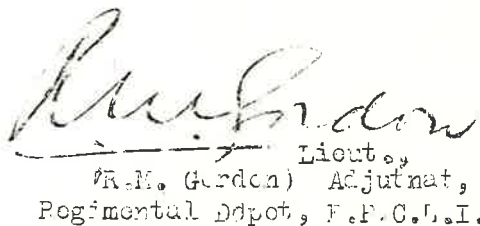 R.M. Gordon
Lieut.,
(R.M. Gordon) Adjutnat,
Regimental Ddpot, P.P.C.L.I.